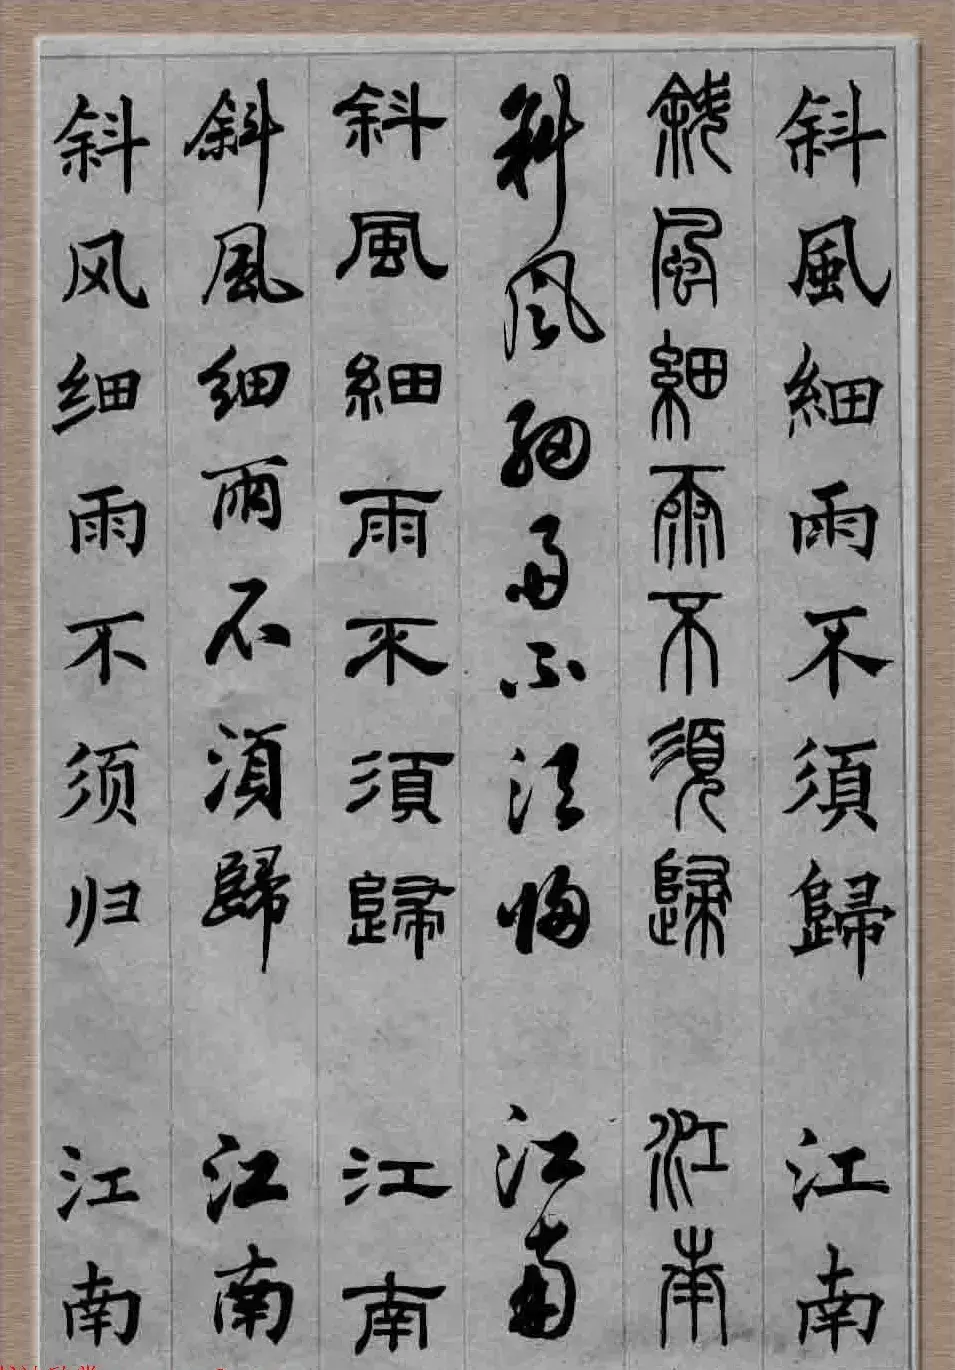 斜風細雨不須歸 江南
斜風細雨不須歸 江南
斜風細雨不須歸 江南
斜風細雨不須歸 江南
斜風细雨不須歸 江南
斜风细雨不须归 江南